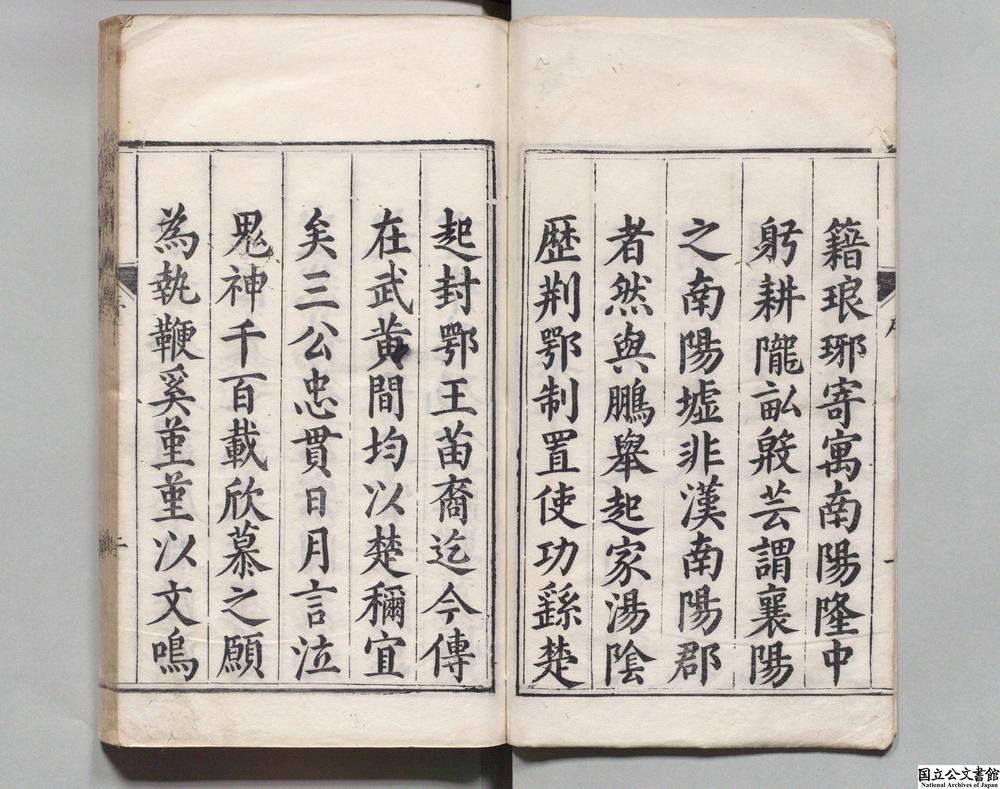 籍琅琊寄寓南陽隆中
躬耕隴畝殷芸謂襄陽
之南陽墟非漢南陽郡
者然與鵬舉起家湯陰
歷荆鄂制置使功繇楚
起封鄂王苗裔迄今傳
在武黄間均以楚稱宜
矣三公忠貫日月言泣
鬼神千百載欣慕之願
為執鞭奚堇堇以文鳴
国立公文書館
National Archives of Japan